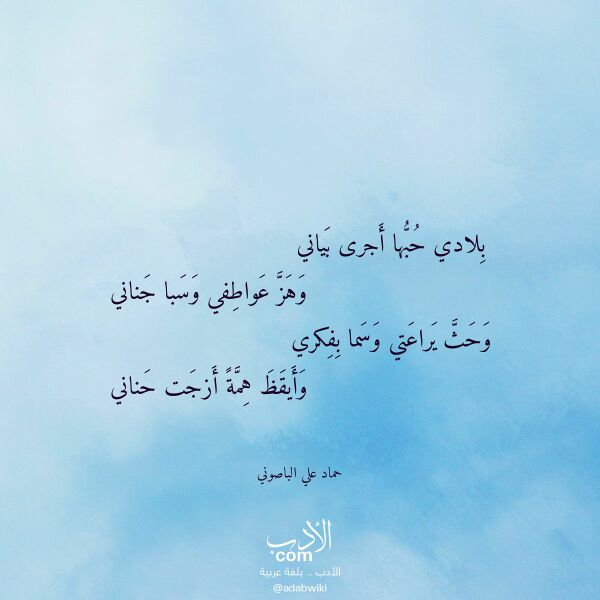 بِلادي حُبُّها أَجرى بَياني
وَهَزَّ عَواطِفي وَسَبا جَناني
وَحَثَّ يَراعَتي وَسَما بِفِكري
وَأَيقَظَ هِمَّةً أَزجَت حَناني
حماد علي الباصوني
الأدب
com
الأدب .. بلغة عربية
@adabwiki